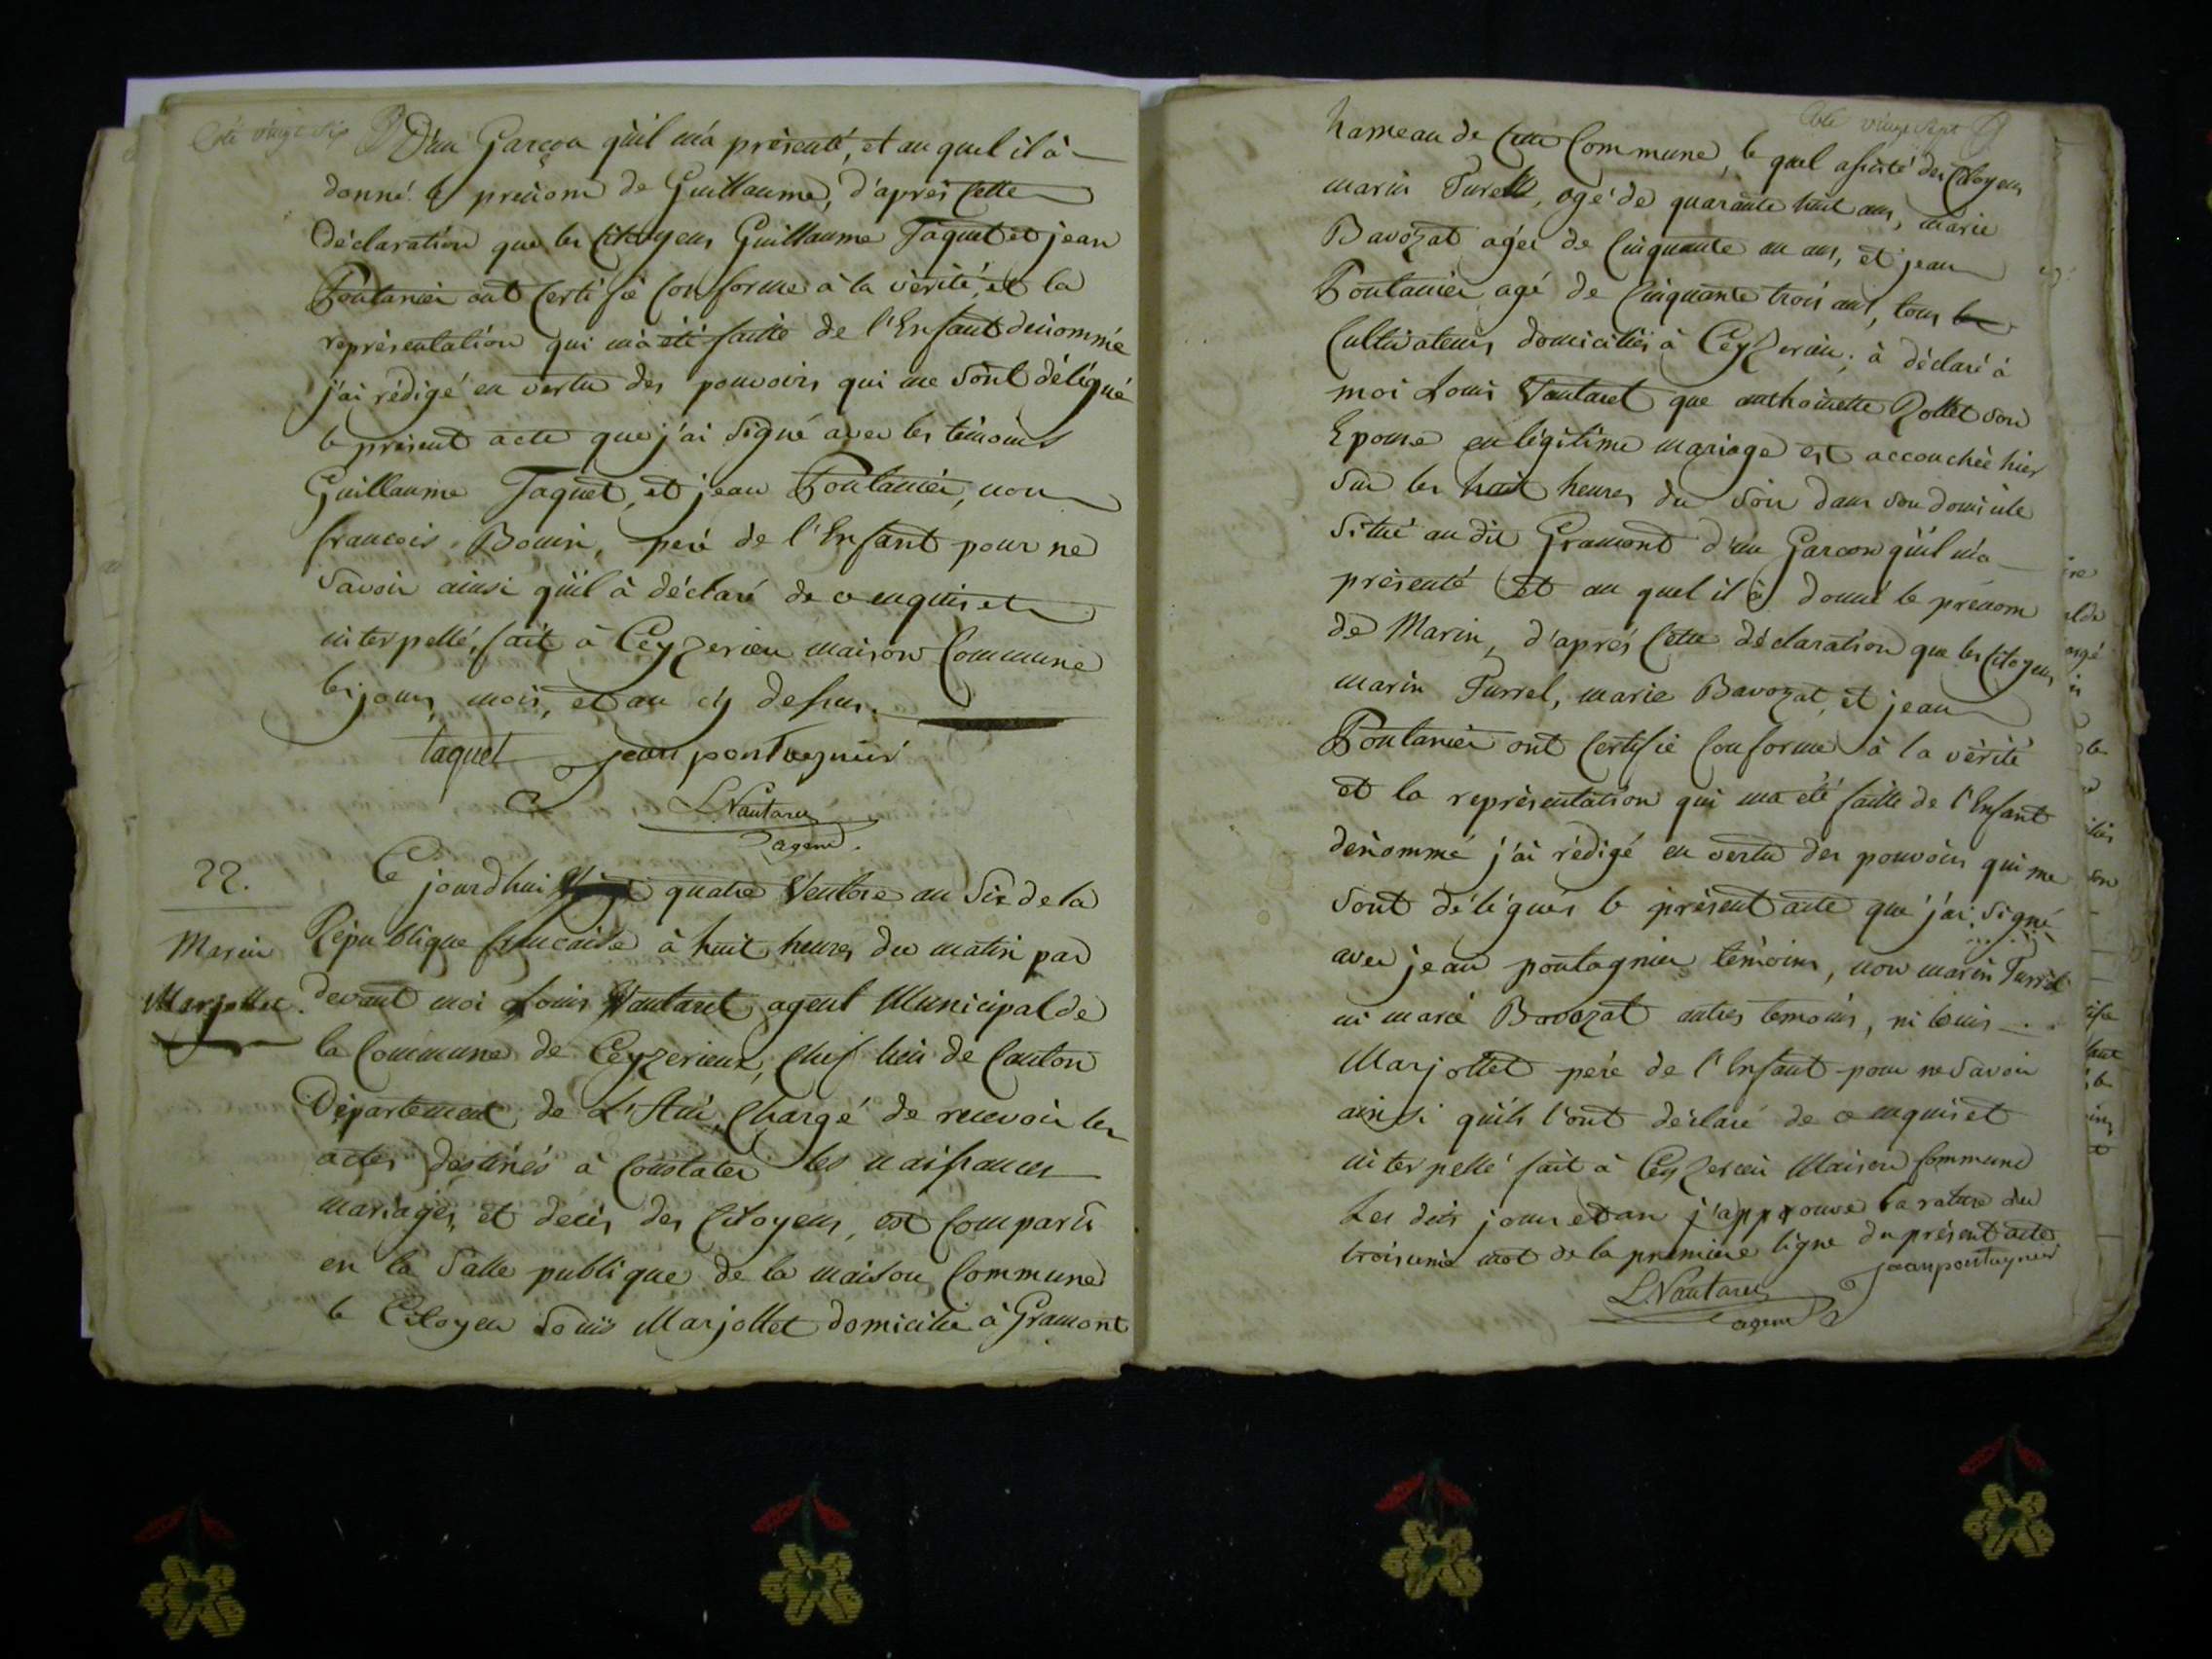 Coté vingt six
D'un Garçon qu'il m'a présenté, et au quel il à
donné le prénom de Guillaume, d'après cette
déclaration que les Citoyens Guillaume Taquet et jean
Pontanier ont certifié conforme à la vérité, et la
représentation qui m'a été faitte de l'Enfant dénommé
j'ai rédigé en vertu des pouvoirs qui me sont délégué
le présent acte que j'ai signé avec les témoins
Guillaume Taquet, et jean Pontanier, non
francois Bouin, peré de l'Enfant pour ne
savoir ainsi qu'il à déclaré de ce enquis et
interpellé, fait à Ceyzerieu maison Commune
les jours, mois, et an cy dessus.
taquet jean pontagnier
L. Vantaret
agent.
22.
Marin
Marjollet.
Ce jourd'hui quatre Ventose an Six de la
République francaise à huit heures du matin par
devant moi Louis Vantaret agent Municipal de
la Commune de Ceyzerieux, chef lieu de Canton
Département de L'Ain, chargé de recevoir les
actes destinés à constater les naissances
mariages, et décès des Citoyens, est comparu
en la salle publique de la maison Commune
le Citoyen Louis Marjollet domicilié à Gramont
Coté vingt sept
hameau de cette Commune, le quel assisté des Citoyens
marin Turell, agé de quarante huit ans, marie
Bavozat agée de cinquante un ans, et jean
Pontanier agé de cinquante trois ans, tous
Cultivateurs domiciliés à Ceyzerieu, à déclaré à
moi Louis Vantaret que anthoinette Zollet son
Epouse en légitime mariage est accouchée hier
sur les huit heures du soir dans son domicile
situé au dit Gramont d'un Garcon qu'il m'a
présenté et au quel il à donné le prénom
de Marin, d'aprés cette déclaration que les Citoyens
marin Turrel, marie Bavozat, et jean
Pontanier ont certifié conforme à la vérité
et la représentation qui ma été faitte de l'Enfant
dénommé j'ai rédigé en vertu des pouvoirs qui me
sont délégués le présent acte que j'ai signé
avec jean pontagnier témoins, non marin Turrel
ni marie Bavozat autres temoins, ni louis
Marjollet peré de l'Enfant pour ne savoir
ainsi qu'ils l'ont déclaré de ce enquis et
interpellé fait à Ceyzerieu Maison Commune
Les dits jours et an j'approuve la rature du
troisieme mot de la premiere ligne du présent acte
jean pontagnier
L. Vantaret
agent